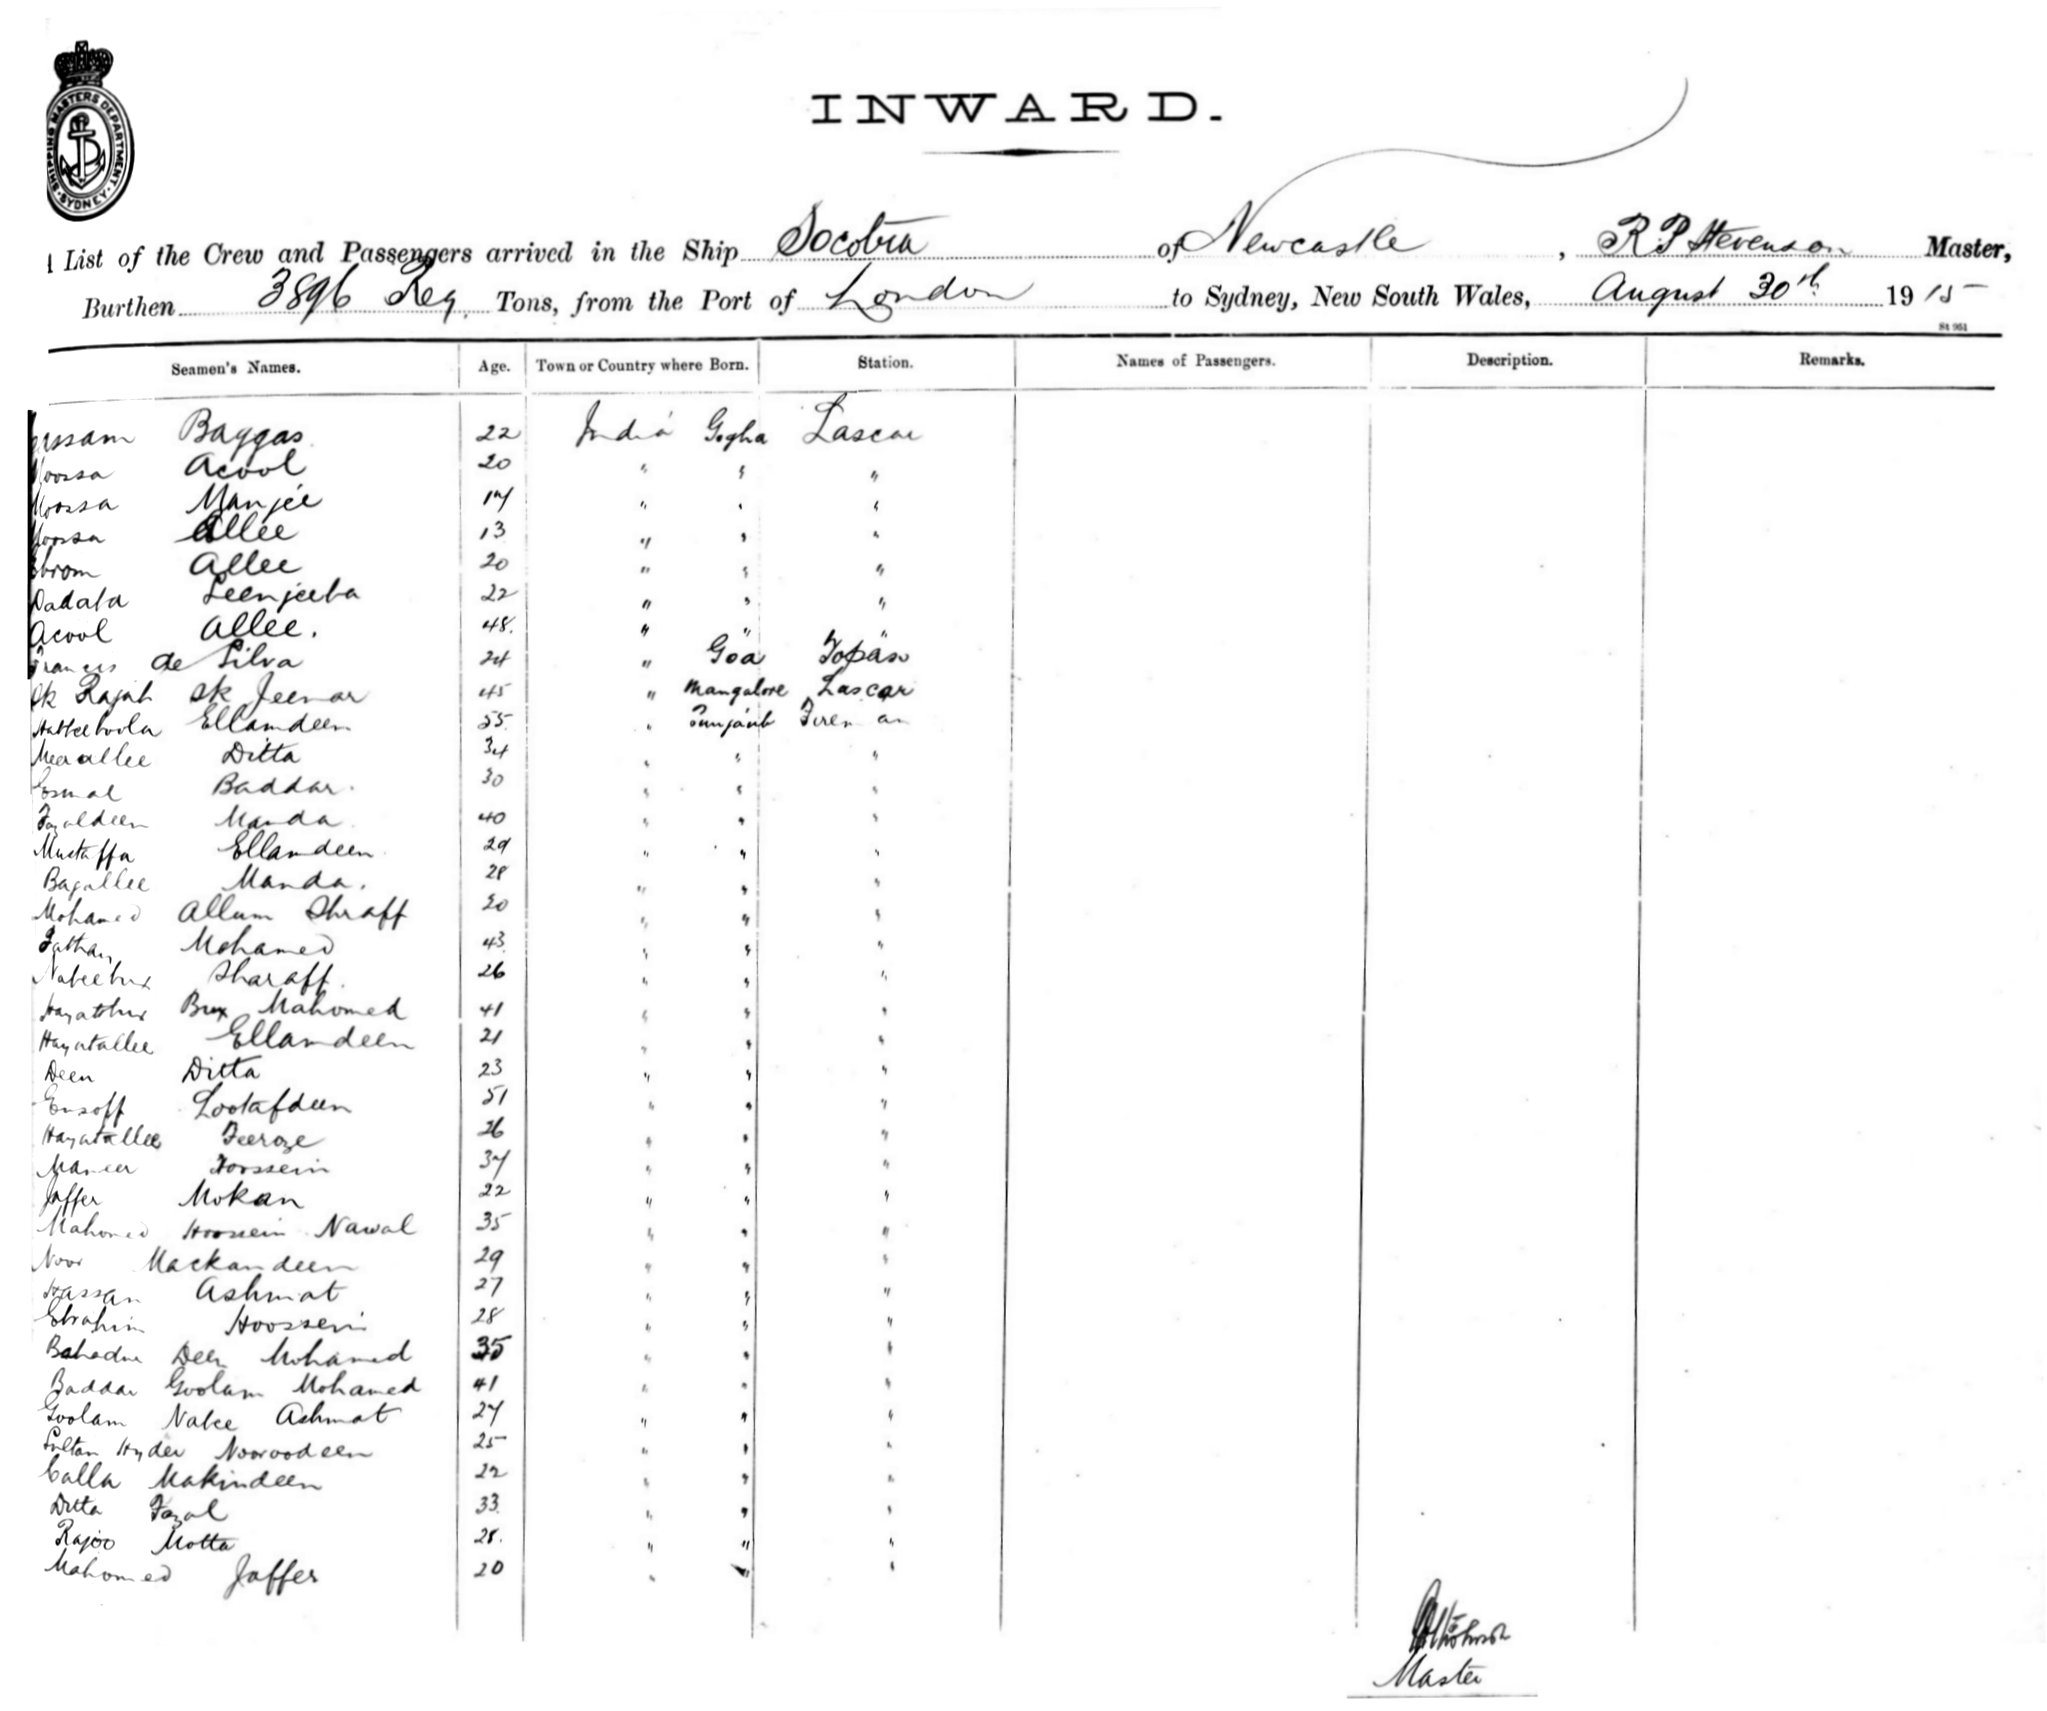 SHIPPING MASTERS DEPARTMENT · SYDNEY ·
INWARD.
List of the Crew and Passengers arrived in the Ship Socotra of Newcastle, R. P. Stevenson Master,
Burthen 3896 Reg. Tons, from the Port of London to Sydney, New South Wales, August 30th 1915
St 951
Seamen's Names. Age. Town or Country where Born. Station. Names of Passengers. Description. Remarks.
Baggas 22 India Gogha Lascar
Moossa Acool 20 " " "
Moossa Manjee 17 " " "
Moossa Allee 13 " " "
Allee 20 " " "
Dadala 22 " " "
Acool Allee. 48. " " "
Francis de Silva 24 " Goa Topass
Sk Rajah Sk Jeemar 45 " Mangalore Lascar
Ellamdeen 55. " Punjaub Fireman
Meerallee Ditta 34 " " "
Esmal Baddar. 30 " " "
Fazaldeen Manda 40 " " "
Mustaffa Ellamdeen 29 " " "
Bagallee Manda. 28 " " "
Mohamed Allum Shraff 20 " " "
Mohamed 43. " " "
Nabeebux Sharaff. 26 " " "
Hayatbux Bux Mahomed 41 " " "
Hayatallee Ellamdeen 21 " " "
Deen Ditta 23 " " "
Eusoff Lootafdeen 51 " " "
Hayatallee Feeroze 26 " " "
Hoossein 37 " " "
Jaffer Mokan 22 " " "
Mahomed Hoossein Nawal 35 " " "
Noor Mackandeen 29 " " "
Hassan Ashmat 27 " " "
Ebrahim Hoossein 28 " " "
Bahadur Deen Mohamed 35 " " "
Baddar Goolam Mohamed 41 " " "
Goolam Nabee Ashmat 27 " " "
Sultan Hyder Nooroodeen 25 " " "
Calla Makindeen 22 " " "
Ditta Fazal 33. " " "
Rajoo Motta 28. " " "
Mahomed Jaffer 20 " " "
Master